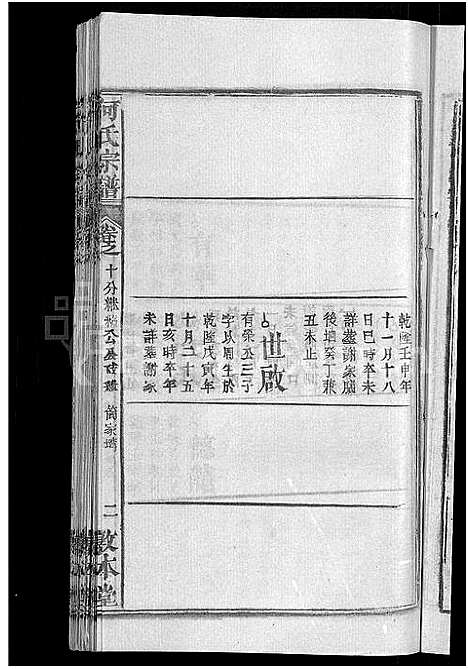 乾隆壬申年
十一月十八
日巳時卒未
詳葬謝家屋
後塡癸丁兼
丑未止
世啟
有榮公三子
字以周生於
乾隆戊寅年
十月二十五
日亥時卒年
未詳葬謝家
何氏宗譜
卷之
十分
公房
二
敦本堂